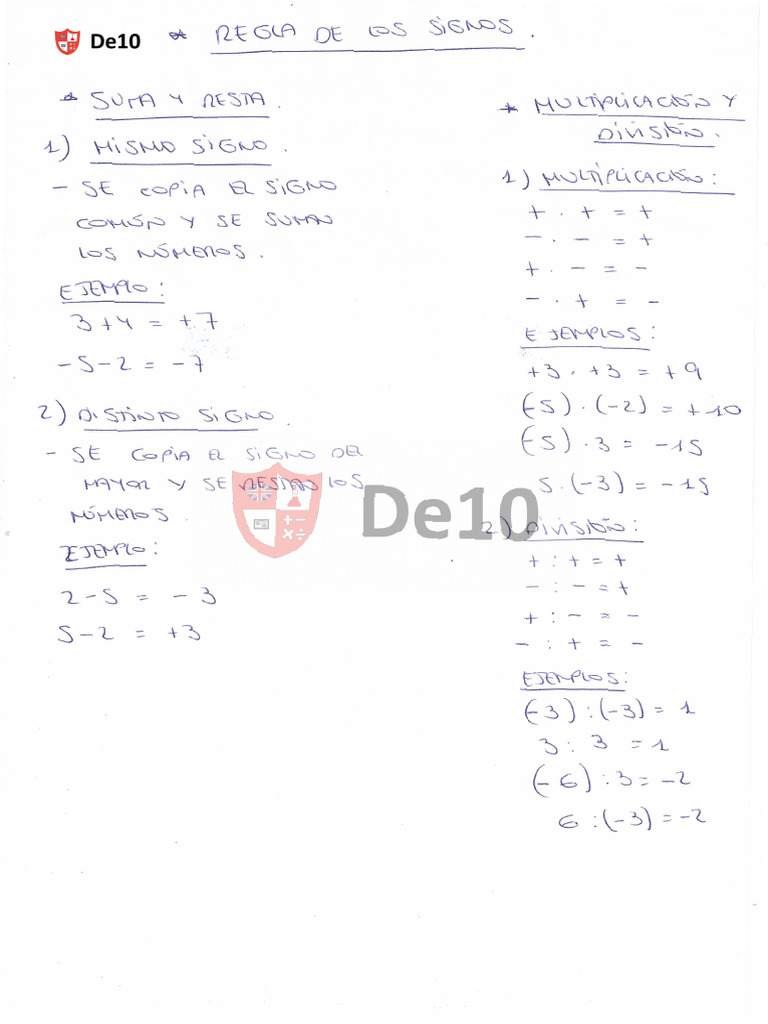 De10 * REGLA DE LOS SIGNOS.
* SUMA Y RESTA.
1) MISMO SIGNO.
- SE COPIA EL SIGNO
COMÚN Y SE SUMAN
LOS NÚMEROS.
EJEMPLO:
3+4 = +7
-5-2 = -7
2) DISTINTO SIGNO.
- SE COPIA EL SIGNO DEL
MAYOR Y SE RESTAN LOS
NÚMEROS.
EJEMPLO:
2-5 = -3
5-2 = +3
De10
* MULTIPLICACIÓN Y
DIVISIÓN.
1) MULTIPLICACIÓN:
+ . + = +
- . - = +
+ . - = -
- . + = -
EJEMPLOS:
+3 . +3 = +9
(-5) . (-2) = +10
(-5) . 3 = -15
5 . (-3) = -15
2) DIVISIÓN:
+ : + = +
- : - = +
+ : - = -
- : + = -
EJEMPLOS:
(-3) : (-3) = 1
3 : 3 = 1
(-6) : 3 = -2
6 : (-3) = -2